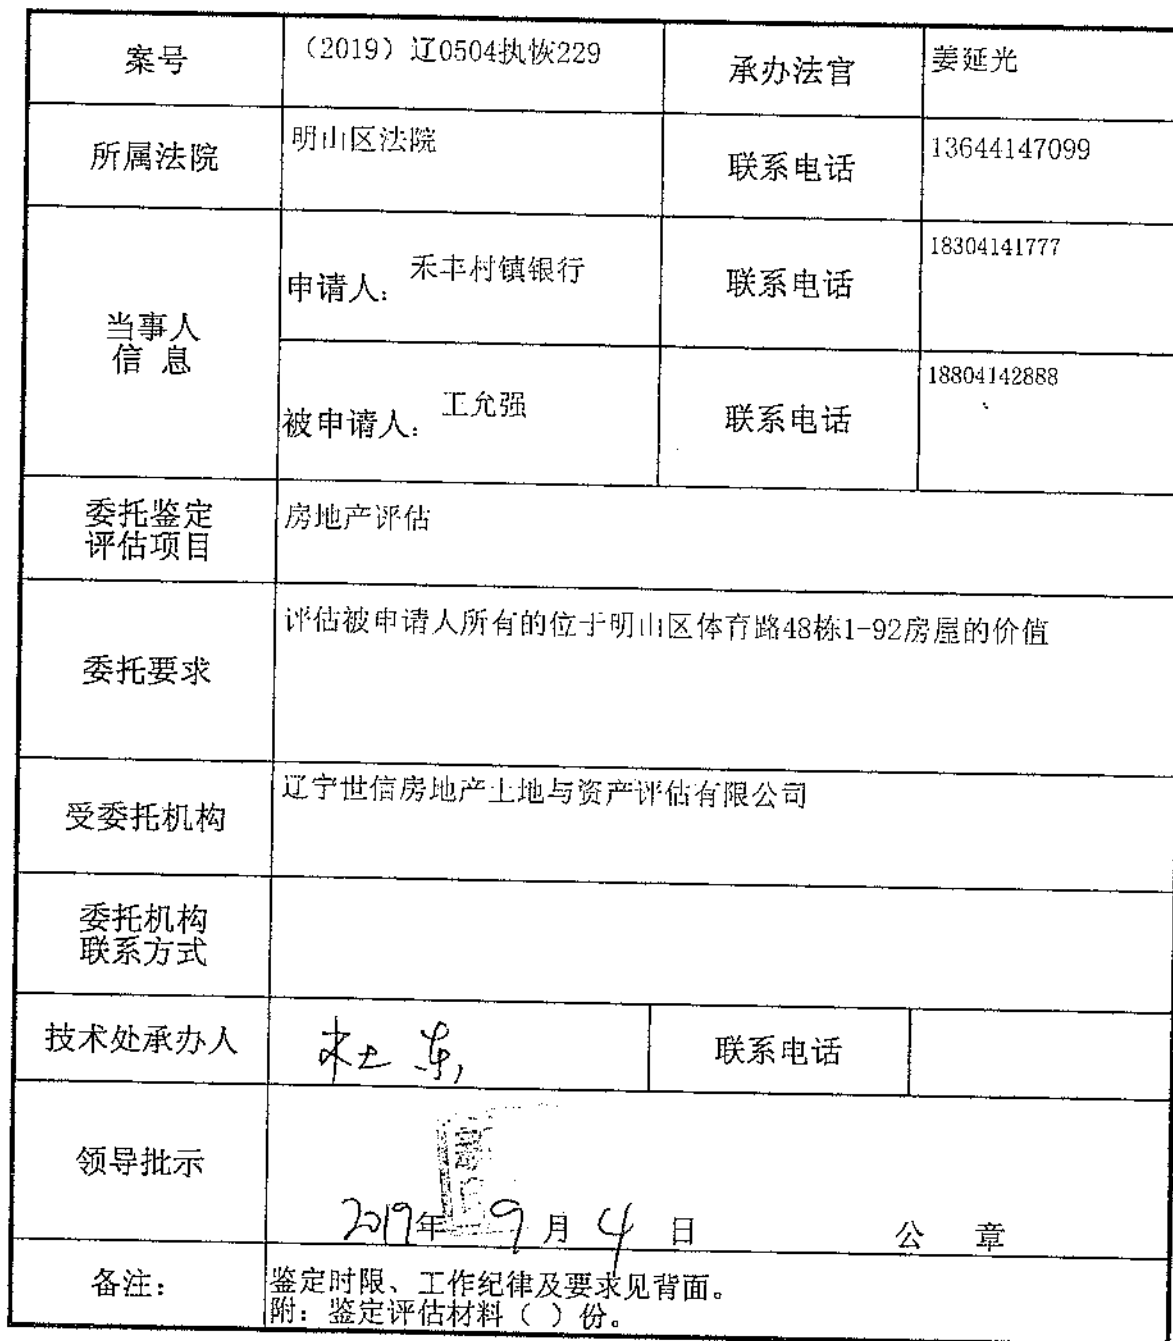 案号 （2019）辽0504执恢229 承办法官 姜延光
所属法院 明山区法院 联系电话 13644147099
当事人
信 息
申请人： 禾丰村镇银行 联系电话 18304141777
被申请人： 王允强 联系电话 18804142888
委托鉴定
评估项目
房地产评估
委托要求 评估被申请人所有的位于明山区体育路48栋1-92房屋的价值
受委托机构 辽宁世信房地产土地与资产评估有限公司
委托机构
联系方式
技术处承办人 杜 联系电话
领导批示
2019年 9 月 4 日 公 章
备注： 鉴定时限、工作纪律及要求见背面。
附：鉴定评估材料（ ）份。